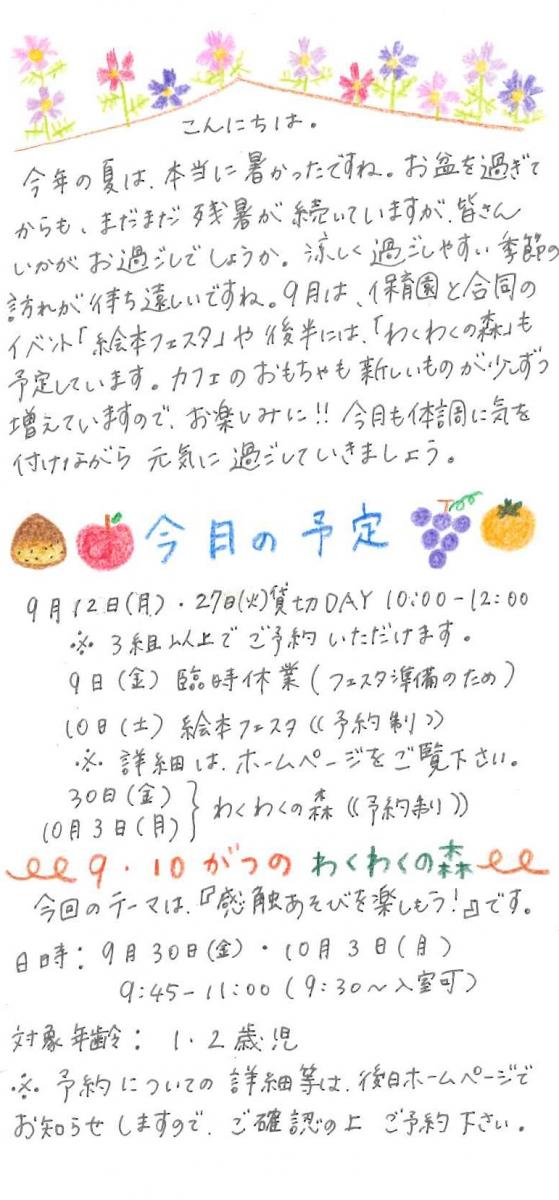 こんにちは。
今年の夏は、本当に暑かったですね。お盆を過ぎて
からも、まだまだ残暑が続いていますが、皆さん
いかがお過ごしでしょうか。涼しく過ごしやすい季節の
訪れが待ち遠しいですね。9月は、保育園と合同の
イベント「絵本フェスタ」や後半には、「わくわくの森」も
予定しています。カフェのおもちゃも新しいものが少しずつ
増えていますので、お楽しみに!!今月も体調に気を
付けながら元気に過ごしていきましょう。
今月の予定
9月12日(月)・27日(火)貸切DAY 10:00-12:00
※3組以上でご予約いただけます。
9日(金)臨時休業(フェスタ準備のため)
10日(土)絵本フェスタ((予約制))
※詳細は、ホームページをご覧下さい。
30日(金)
10月3日(月)}わくわくの森((予約制))
9・10がつのわくわくの森
今回のテーマは、『感触あそびを楽しもう!』です。
日時:9月30日(金)・10月3日(月)
9:45-11:00(9:30~入室可)
対象年齢:1・2歳児
※予約についての詳細等は、後日ホームページで
お知らせしますので、ご確認の上ご予約下さい。